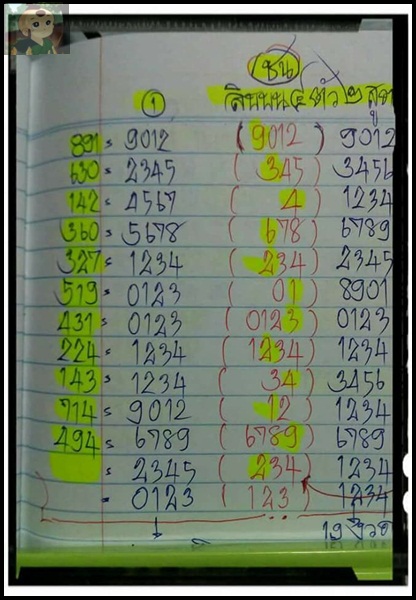 ชน
① สิบบน ๔ ตัว ๒ สูตร
891 = 9012 (9012) 9012
630 = 2345 (345) 3456
142 = 4567 (4) 1234
360 = 5678 (678) 6789
327 = 1234 (234) 2345
519 = 0123 (01) 8901
431 = 0123 (0123) 0123
224 = 1234 (1234) 1234
143 = 1234 (34) 3456
714 = 9012 (12) 1234
494 = 6789 (6789) 6789
= 2345 (234) 1234
= 0123 (123) 1234
19 งวด